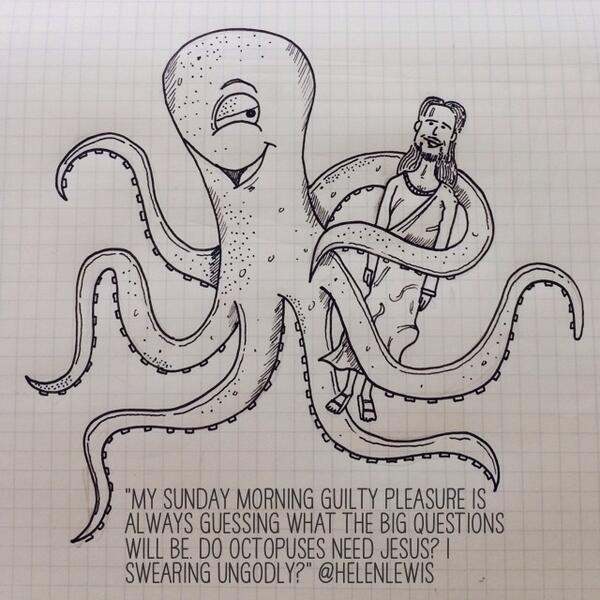 "MY SUNDAY MORNING GUILTY PLEASURE IS
ALWAYS GUESSING WHAT THE BIG QUESTIONS
WILL BE. DO OCTOPUSES NEED JESUS? I
SWEARING UNGODLY?" @HELENLEWIS